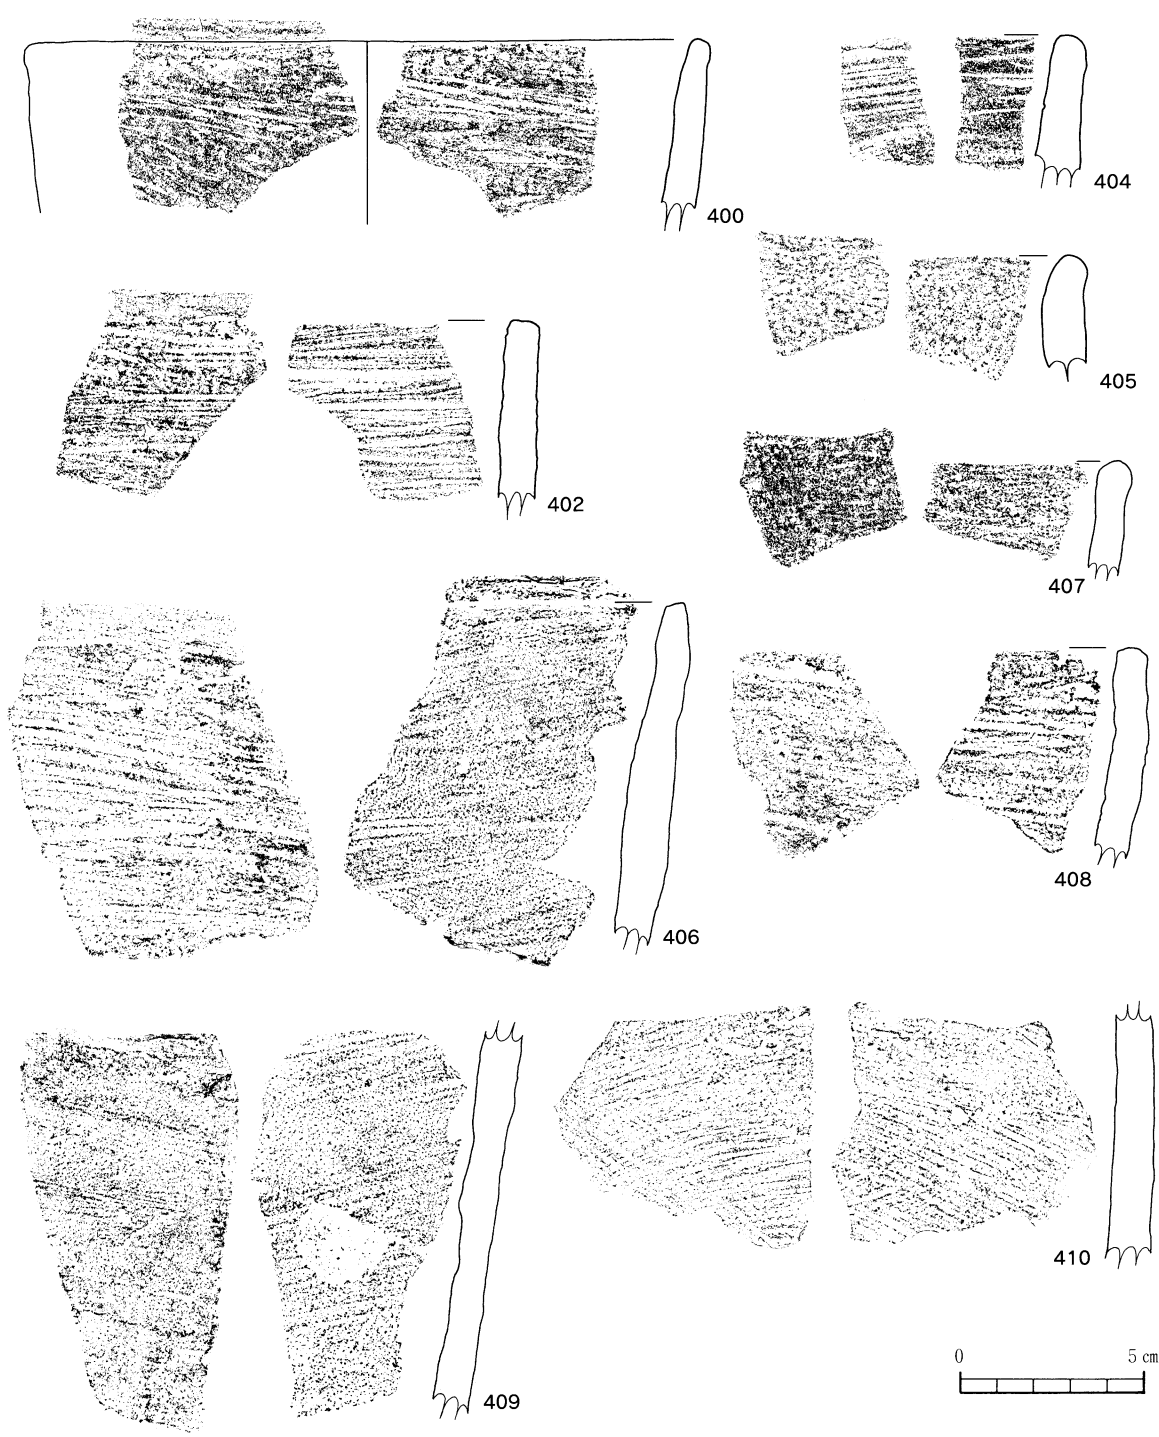 400
404
405
402
407
406
408
409
410
0 5 cm